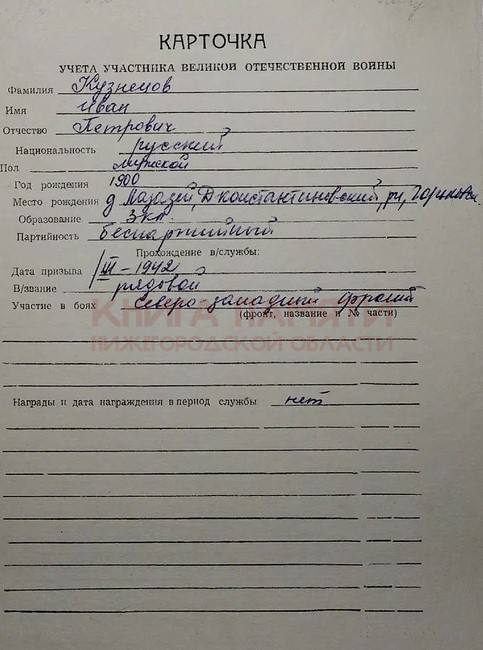 КАРТОЧКА
УЧЕТА УЧАСТНИКА ВЕЛИКОЙ ОТЕЧЕСТВЕННОЙ ВОЙНЫ
Фамилия Кузнецов
Имя Иван
Отчество Петрович
Национальность русский
Пол мужской
Год рождения 1900
Место рождения д Д Константиновский, рн, Горьков
Образование 3 кл.
Партийность беспартийный
Прохождение в/службы:
Дата призыва III-1942
В/звание рядовой
Участие в боях Северо-западный фронт
(фронт, название и № части)
КНИГА ПАМЯТИ
НИЖЕГОРОДСКОЙ ОБЛАСТИ
Награды и дата награждения в период службы нет